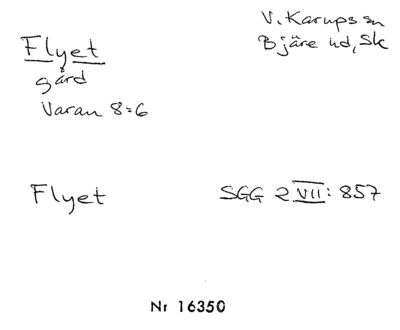 Flyet
gård
Varan 8=6
V. Karups sn
Bjäre hd, Sk
Flyet
SGG 2 VII: 857
Nr 16350